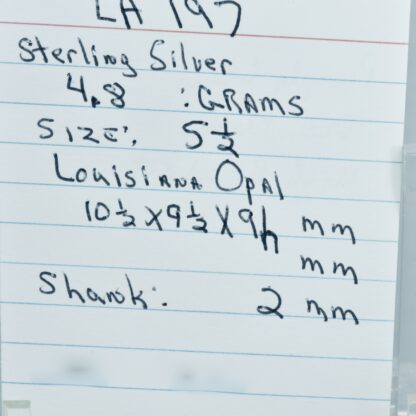 LA 197
Sterling Silver
4.8 : GRAMS
SIZE: 5 1/2
Louisiana Opal
10 1/2 X 9 1/2 X 9h mm
mm
Shank: 2 mm